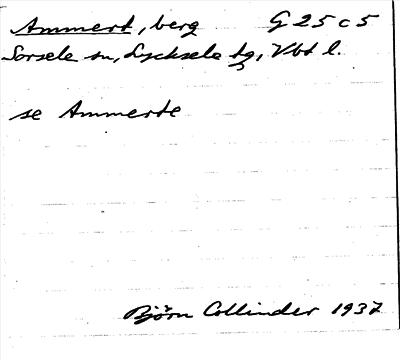 Ammert, berg G 25 c 5
Sorsele sn, Lycksele tg, Vbt l.
se Ammerte
Björn Collinder 1937